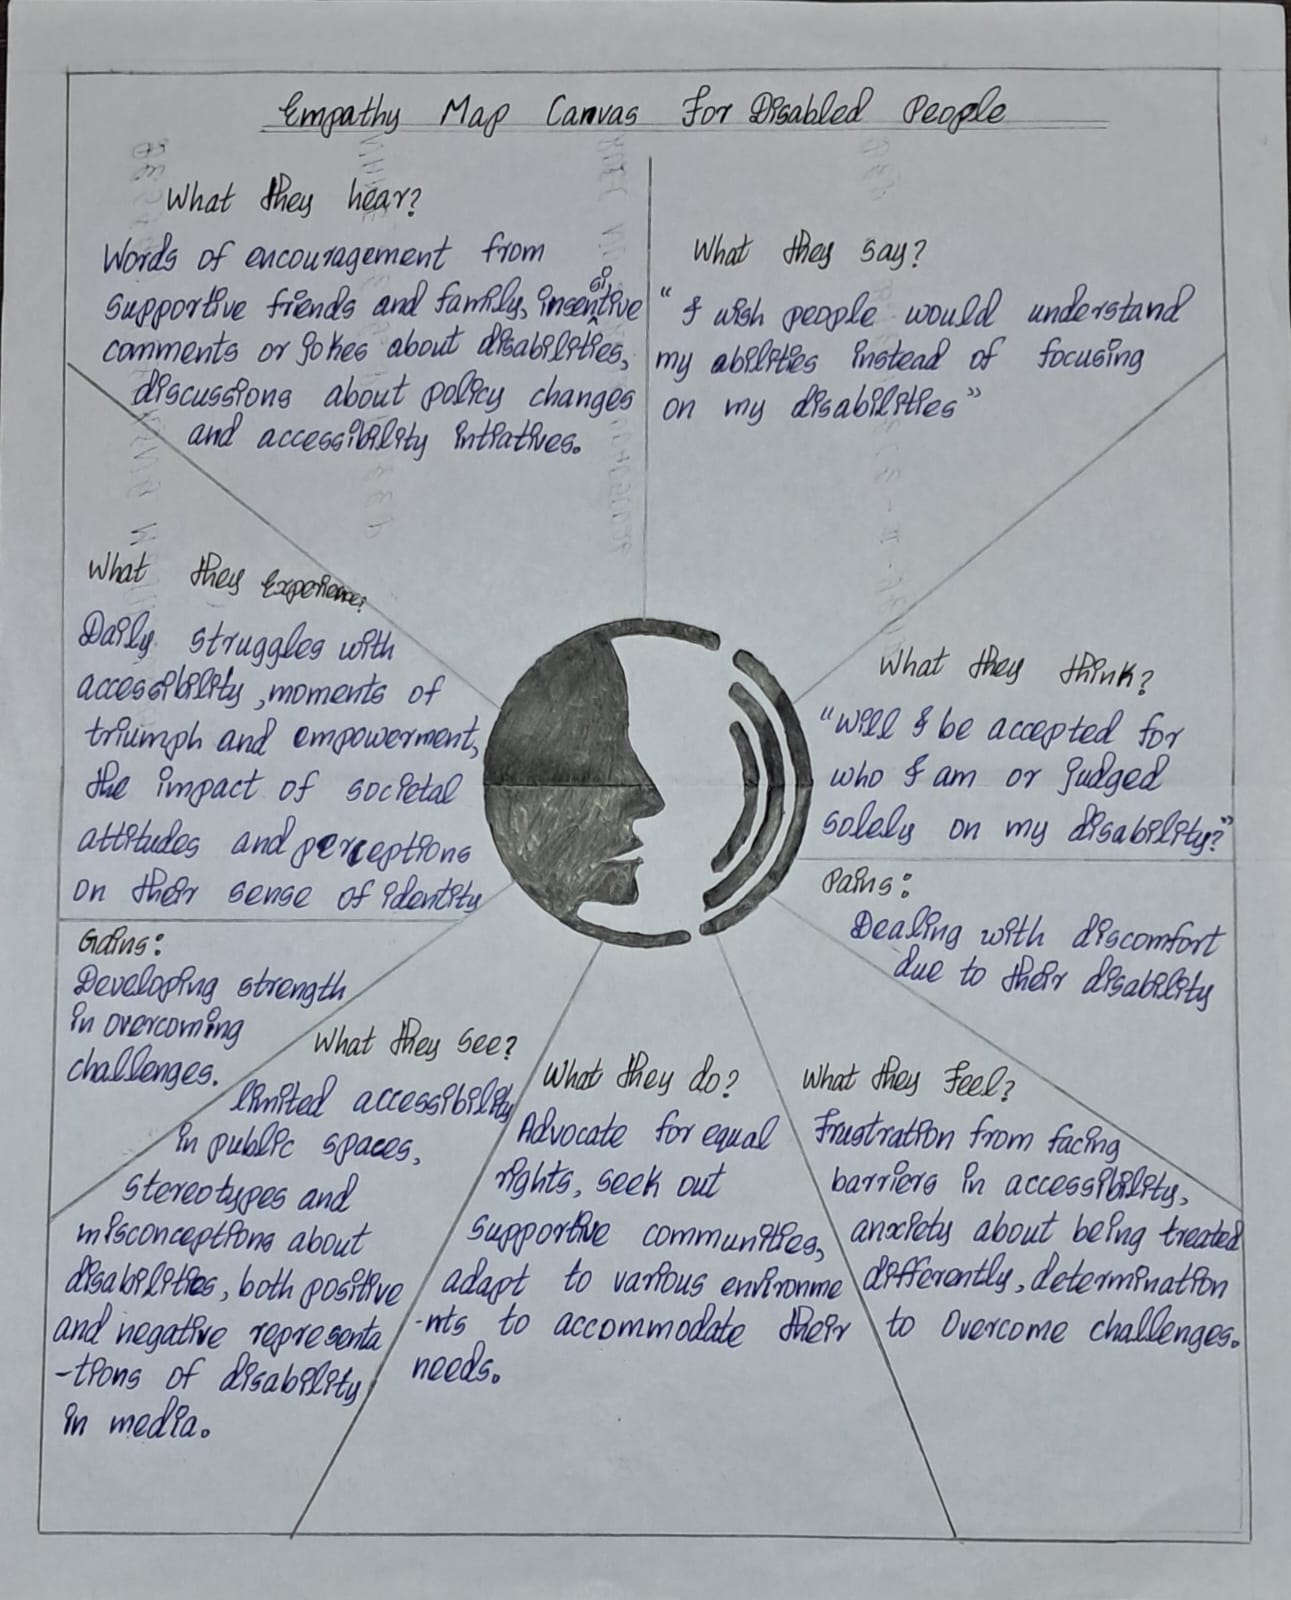 Empathy Map Canvas For Disabled People
What they hear?
Words of encouragement from
supportive friends and family, insensitive
comments or jokes about disabilities,
discussions about policy changes
and accessibility intiatives.
What they say?
“I wish people would understand
my abilities instead of focusing
on my disabilities”
What they Experience?
Daily struggles with
accessibility, moments of
triumph and empowerment,
the impact of societal
attitudes and perceptions
on their sense of identity
What they think?
“Will I be accepted for
who I am or judged
solely on my disability?”
Pains:
Dealing with discomfort
due to their disability
Gains:
Developing strength
in overcoming
challenges.
What they see?
limited accessibility
in public spaces,
stereotypes and
misconceptions about
disabilities, both positive
and negative representa
-tions of disability
in media.
What they do?
Advocate for equal
rights, seek out
supportive communities,
adapt to various environme
-nts to accommodate their
needs.
What they Feel?
Frustration from facing
barriers in accessibility,
anxiety about being treated
differently, determination
to overcome challenges.